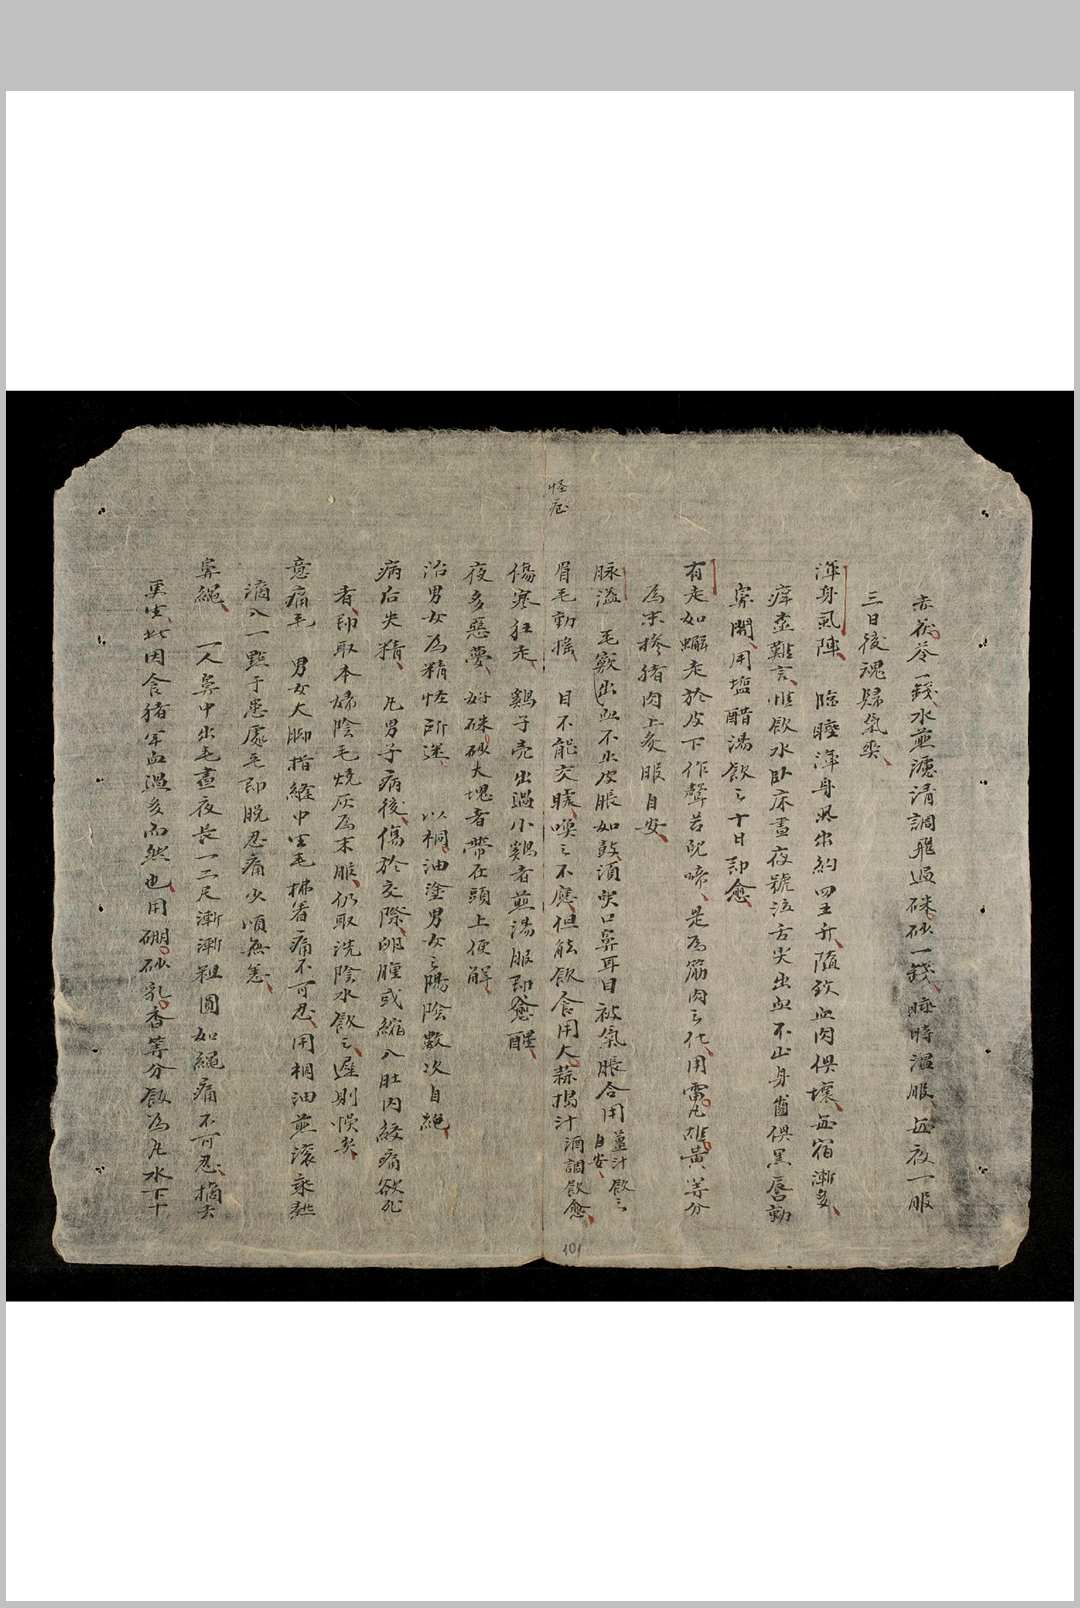 赤茯苓一錢水煎濾清調飛過硃砂一錢睡時温服每夜一服
三日後魂歸氣爽
渾身虱陣 臨睡渾身虱出約四五升隨致血肉俱壞每宿漸多
痒難言惟飲水卧床晝夜號泣舌尖出血不止身齒俱黑唇動
鼻開用塩醋湯飲之十日即愈
有走如蠏走於皮下作聲若兒啼是為筋肉之化用雷丸雄黄等分
為末摻猪肉上炙服自安
脉溢 毛竅出血不止皮脹如鼓須臾口鼻耳目被氣脹合用薑汁飲之自安
怪症
眉毛動搖 目不能交睫喚之不應但能飲食用大蒜搗汁酒調飲愈
傷寒狂走 鷄子壳出過小鷄者煎湯服即愈醒
夜多惡夢 好硃砂大塊者帶在頭上便解
治男女為精怪所迷 以桐油塗男女之陽陰數次自絶
病后失精 凡男子病後傷於交際卵腫或縮入肚内絞痛欲死
者即取本婦陰毛燒灰為末服仍取洗陰水飲之遲則悞矣
意痛毛 男女大脚指縫中生毛拂着痛不可忍用桐油煎滚乘熱
滴入一點于患處毛即脱忍痛少頃無恙
鼻繩 一人鼻中出毛晝夜長一二尺漸漸粗圓如繩痛不可忍摘去
更生此因食猪羊血過多而然也用硼砂乳香等分飯為丸水下十
101